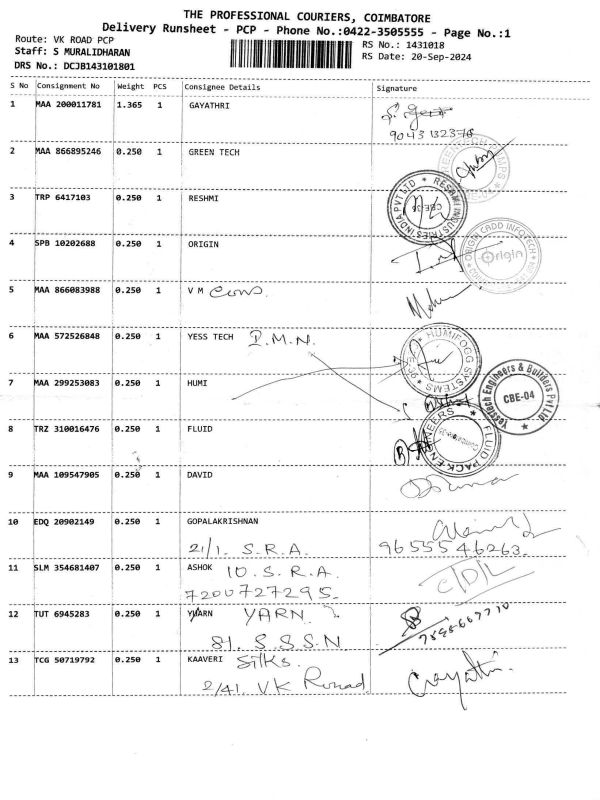 THE PROFESSIONAL COURIERS, COIMBATORE
Delivery Runsheet - PCP - Phone No.:0422-3505555 - Page No.:1
Route: VK ROAD PCP
RS No.: 1431018
Staff: S MURALIDHARAN
RS Date: 20-Sep-2024
DRS No.: DCJB143101801
S No Consignment No Weight PCS Consignee Details Signature
1 MAA 200011781 1.365 1 GAYATHRI
2 MAA 866895246 0.250 1 GREEN TECH
3 TRP 6417103 0.250 1 RESHMI
RESHMI INDUSTRIES INDIA PVT LTD
4 SPB 10202688 0.250 1 ORIGIN
ORIGIN CADD INFOTECH
Origin
5 MAA 866083988 0.250 1 V M Cons.
6 MAA 572526848 0.250 1 YESS TECH P.M.N.
HUMIFOGG SYSTEMS
7 MAA 299253083 0.250 1 HUMI
Yesstech Engineers & Builders Pvt Ltd
CBE-04
8 TRZ 310016476 0.250 1 FLUID
FLUID PACK ENGINEERS
9 MAA 109547905 0.250 1 DAVID
10 EDQ 20902149 0.250 1 GOPALAKRISHNAN
21/1. S.R.A. 9655546263.
11 SLM 354681407 0.250 1 ASHOK 10. S.R.A.
7200727295. C/D/L
12 TUT 6945283 0.250 1 YARN YARN
81. S.S.S.N
13 TCG 50719792 0.250 1 KAAVERI Silks.
2/41. VK Road Gayathri.